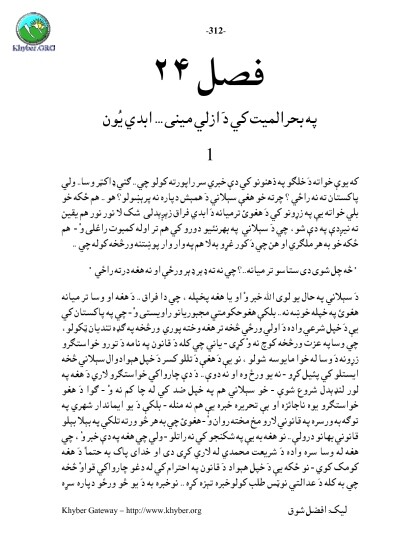 -312-
Khyber.ORG
فصل ۲۴
په بحر المیت کې دَ ازلي مینی... ابدي یُون
1
که یوې خوا ته دَ خلګو په ذهنونو کې دې خبرې سر راپورته کولو چې.. ګنې ډاکټر وسا.. ولې
پاکستان ته نه راځي؟ چرته خو هغې سبلانی دَ همېش دپاره نه پرېښولو؟ هو.. هم څکه خو
بلې خوا ته یې په زړونو کې دَ هغوئ ترمیانه دَ ابدي فراق زېږېدلی شک لا نور نور هم یقین
ته نېږدې په دې شو، چې دَ سبلانی په بهرنیو دورو کې هم تر اوله کمبوت راغلی وُ- هم
څکه خو به هر ملګري او هن چې دَ کور غړو به لا هم په وار وار پوښتنه ورڅخه کوله چې..
"څه چل شوی دی ستاسو تر میانه..؟ چې نه ته ډېر ډېر ورځې او نه هغه درته راځي"
دَ سبلانی په حال یو لوی الله خبر وُ او یا هغه پخپله، چې دا فراق.. دَ هغه او وسا تر میانه
هغوئ په خپله خوښه نه.. بلکې هغو حکومتي مجبوریانو راوستی وُ- چې په پاکستان کې
یې دَ خپل شرعي واده دَ اولې ورځې څخه تر هغه وخته پورې ورڅخه په ګډه نندیان ټکولو،
چې وسا یې عزت ورڅخه کوچ نه وُ کړی- یانې چې کله دَ قانون په نامه دَ تورو خواستګرو
زړونه دَ وسا له خوا مایوسه شولو، نو یې دَ هغې دَ تللو کسر دَ خپل هېواد وال سبلانی څخه
ایستلو کې پئیل کړو- نه یو ورځ وه او نه دوې.. دَ دې چارواکي خواستګرو لارې دَ هغه په
لور لنډېدل شروع شوې- خو سبلانی هم په خپل ضد کې له چا کم نه وُ- ګوا دَ هغو
خواستګرو یوه ناجائزه او بې تحریره خبره یې هم نه منله- بلکې دَ یو ایماندار شهري په
توګه به ورسره په قانوني لارو مخ مخته روان وُ- هغوئ چې به هر څو ورته تیلکې په بېلا بېلو
قانوني بهانو درولې.. نو هغه به یې په شکنجو کې نه راتلو- ولې چې هغه په دې خبر وُ، چې
هغه له وسا سره واده دَ شریعت محمدي له لارې کړی دی او خدای پاک به حتماً دَ هغه
کومک کوي- نو څکه یې دَ خپل هېواد دَ قانون په احترام کې له دغو چارواکي قواوُ څخه
چې به کله دَ عدالتي نوټس طلب کولو خبره تېزه کړه.. نو خبره به دَ یو څو ورځو دپاره سړه
Khyber Gateway – http://www.khyber.org
لیک: افضل شوق